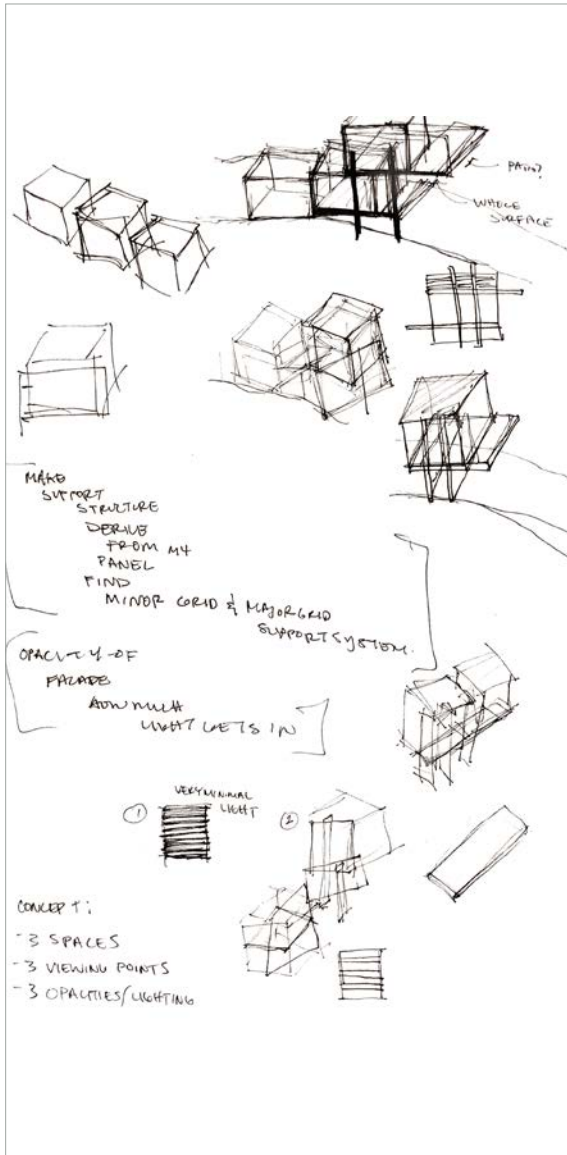 PATIO?
WHOLE
SURFACE
MAKE
SUPPORT
STRUCTURE
DERIVE
FROM M4
PANEL
FIND
MINOR GRID & MAJOR GRID
SUPPORT SYSTEM.
OPACITY OF
FACADE
HOW MUCH
LIGHT GETS IN
VERY MINIMAL
LIGHT
1
2
CONCEPT:
-3 SPACES
-3 VIEWING POINTS
-3 OPACITIES/LIGHTING